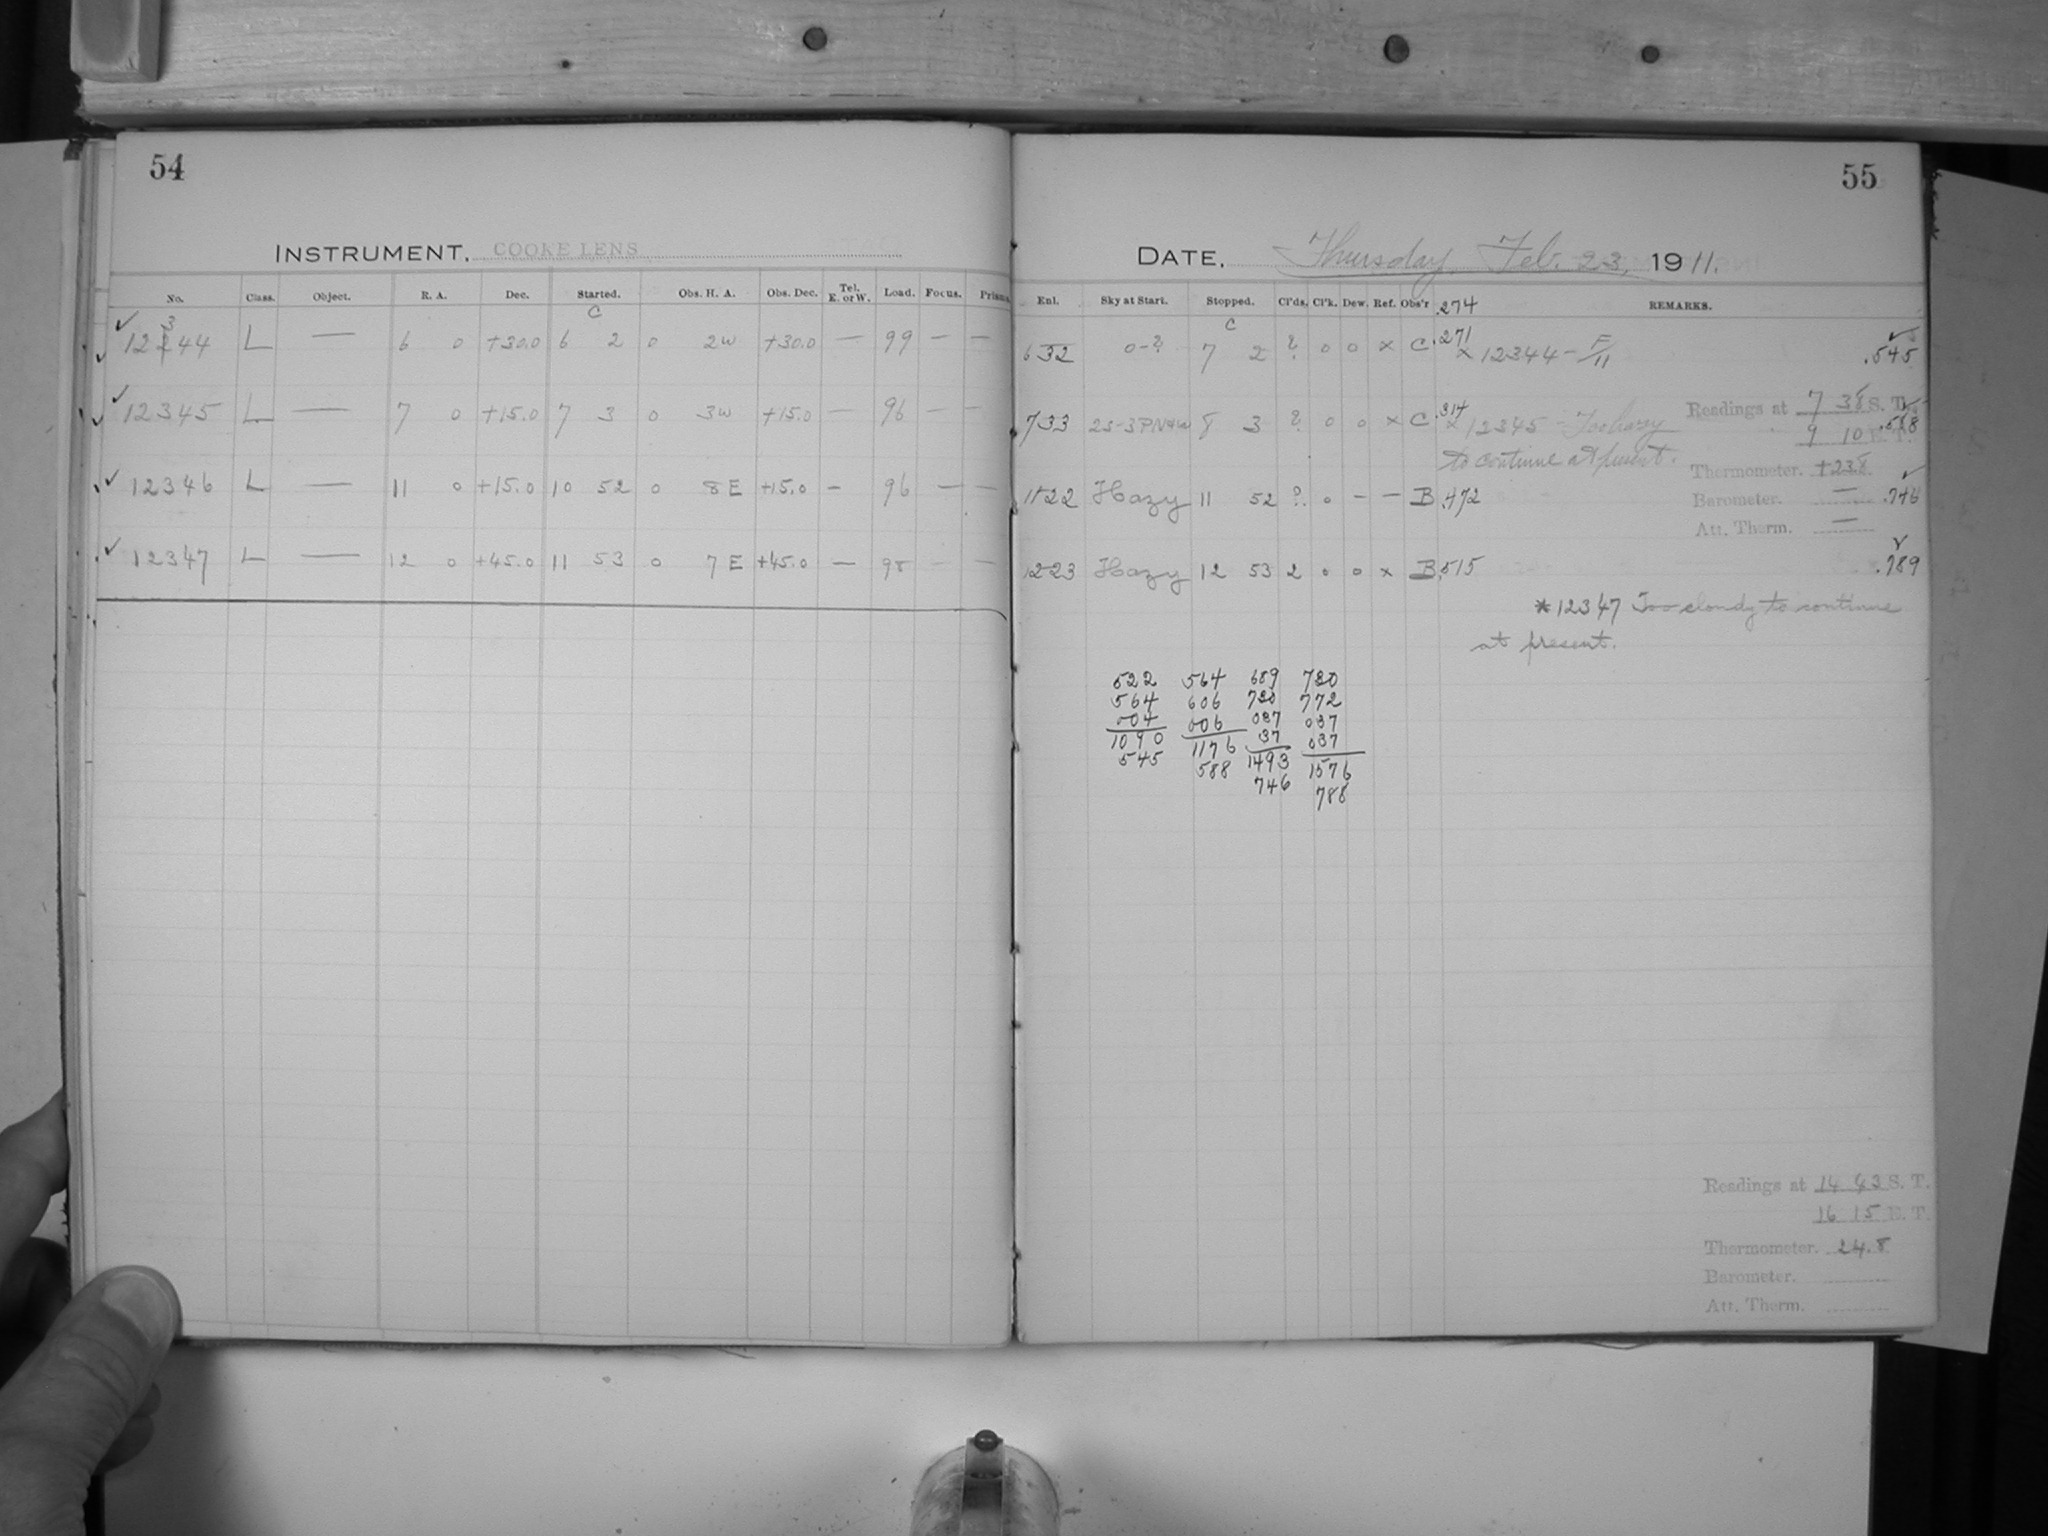 54
INSTRUMENT. COOKE LENS
No. Class. Object. R. A. Dec. Started. Obs. H. A. Obs. Dec. Tel. E. or W. Load. Focus. Prisms
C
12344 L — 6 0 +30.0 6 2 0 2W +30.0 — 99 — —
12345 L — 7 0 +15.0 7 3 0 3W +15.0 — 96 — —
12346 L — 11 0 +15.0 10 52 0 8E +15.0 — 96 — —
12347 L — 12 0 +45.0 11 53 0 7E +45.0 — 98 — —
55
DATE. Thursday, Feb. 23, 1911.
Enl. Sky at Start. Stopped. Cl'ds. Cl'k. Dew. Ref. Obs'r REMARKS.
.274
C
632 0-? 7 2 ? 0 0 x C .271 x 12344 - F/11 .545
Readings at 7 38 S. T.
733 8 3 ? 0 0 x C .314 x 12345 - Too hazy .588
9 10 E. T.
to continue at present.
Thermometer. +23.8
1122 Hazy 11 52 ? 0 — — B .472 .746
Barometer. —
Att. Therm. —
1223 Hazy 12 53 2 0 0 x B .515 .789
*12347 Too cloudy to continue
at present.
522 564 689 720
564 606 720 772
004 006 037 037
1090 1176 37 037
545 588 1493 1576
746 788
Readings at 14 43 S. T.
16 15 E. T.
Thermometer. 24.8
Barometer.
Att. Therm.